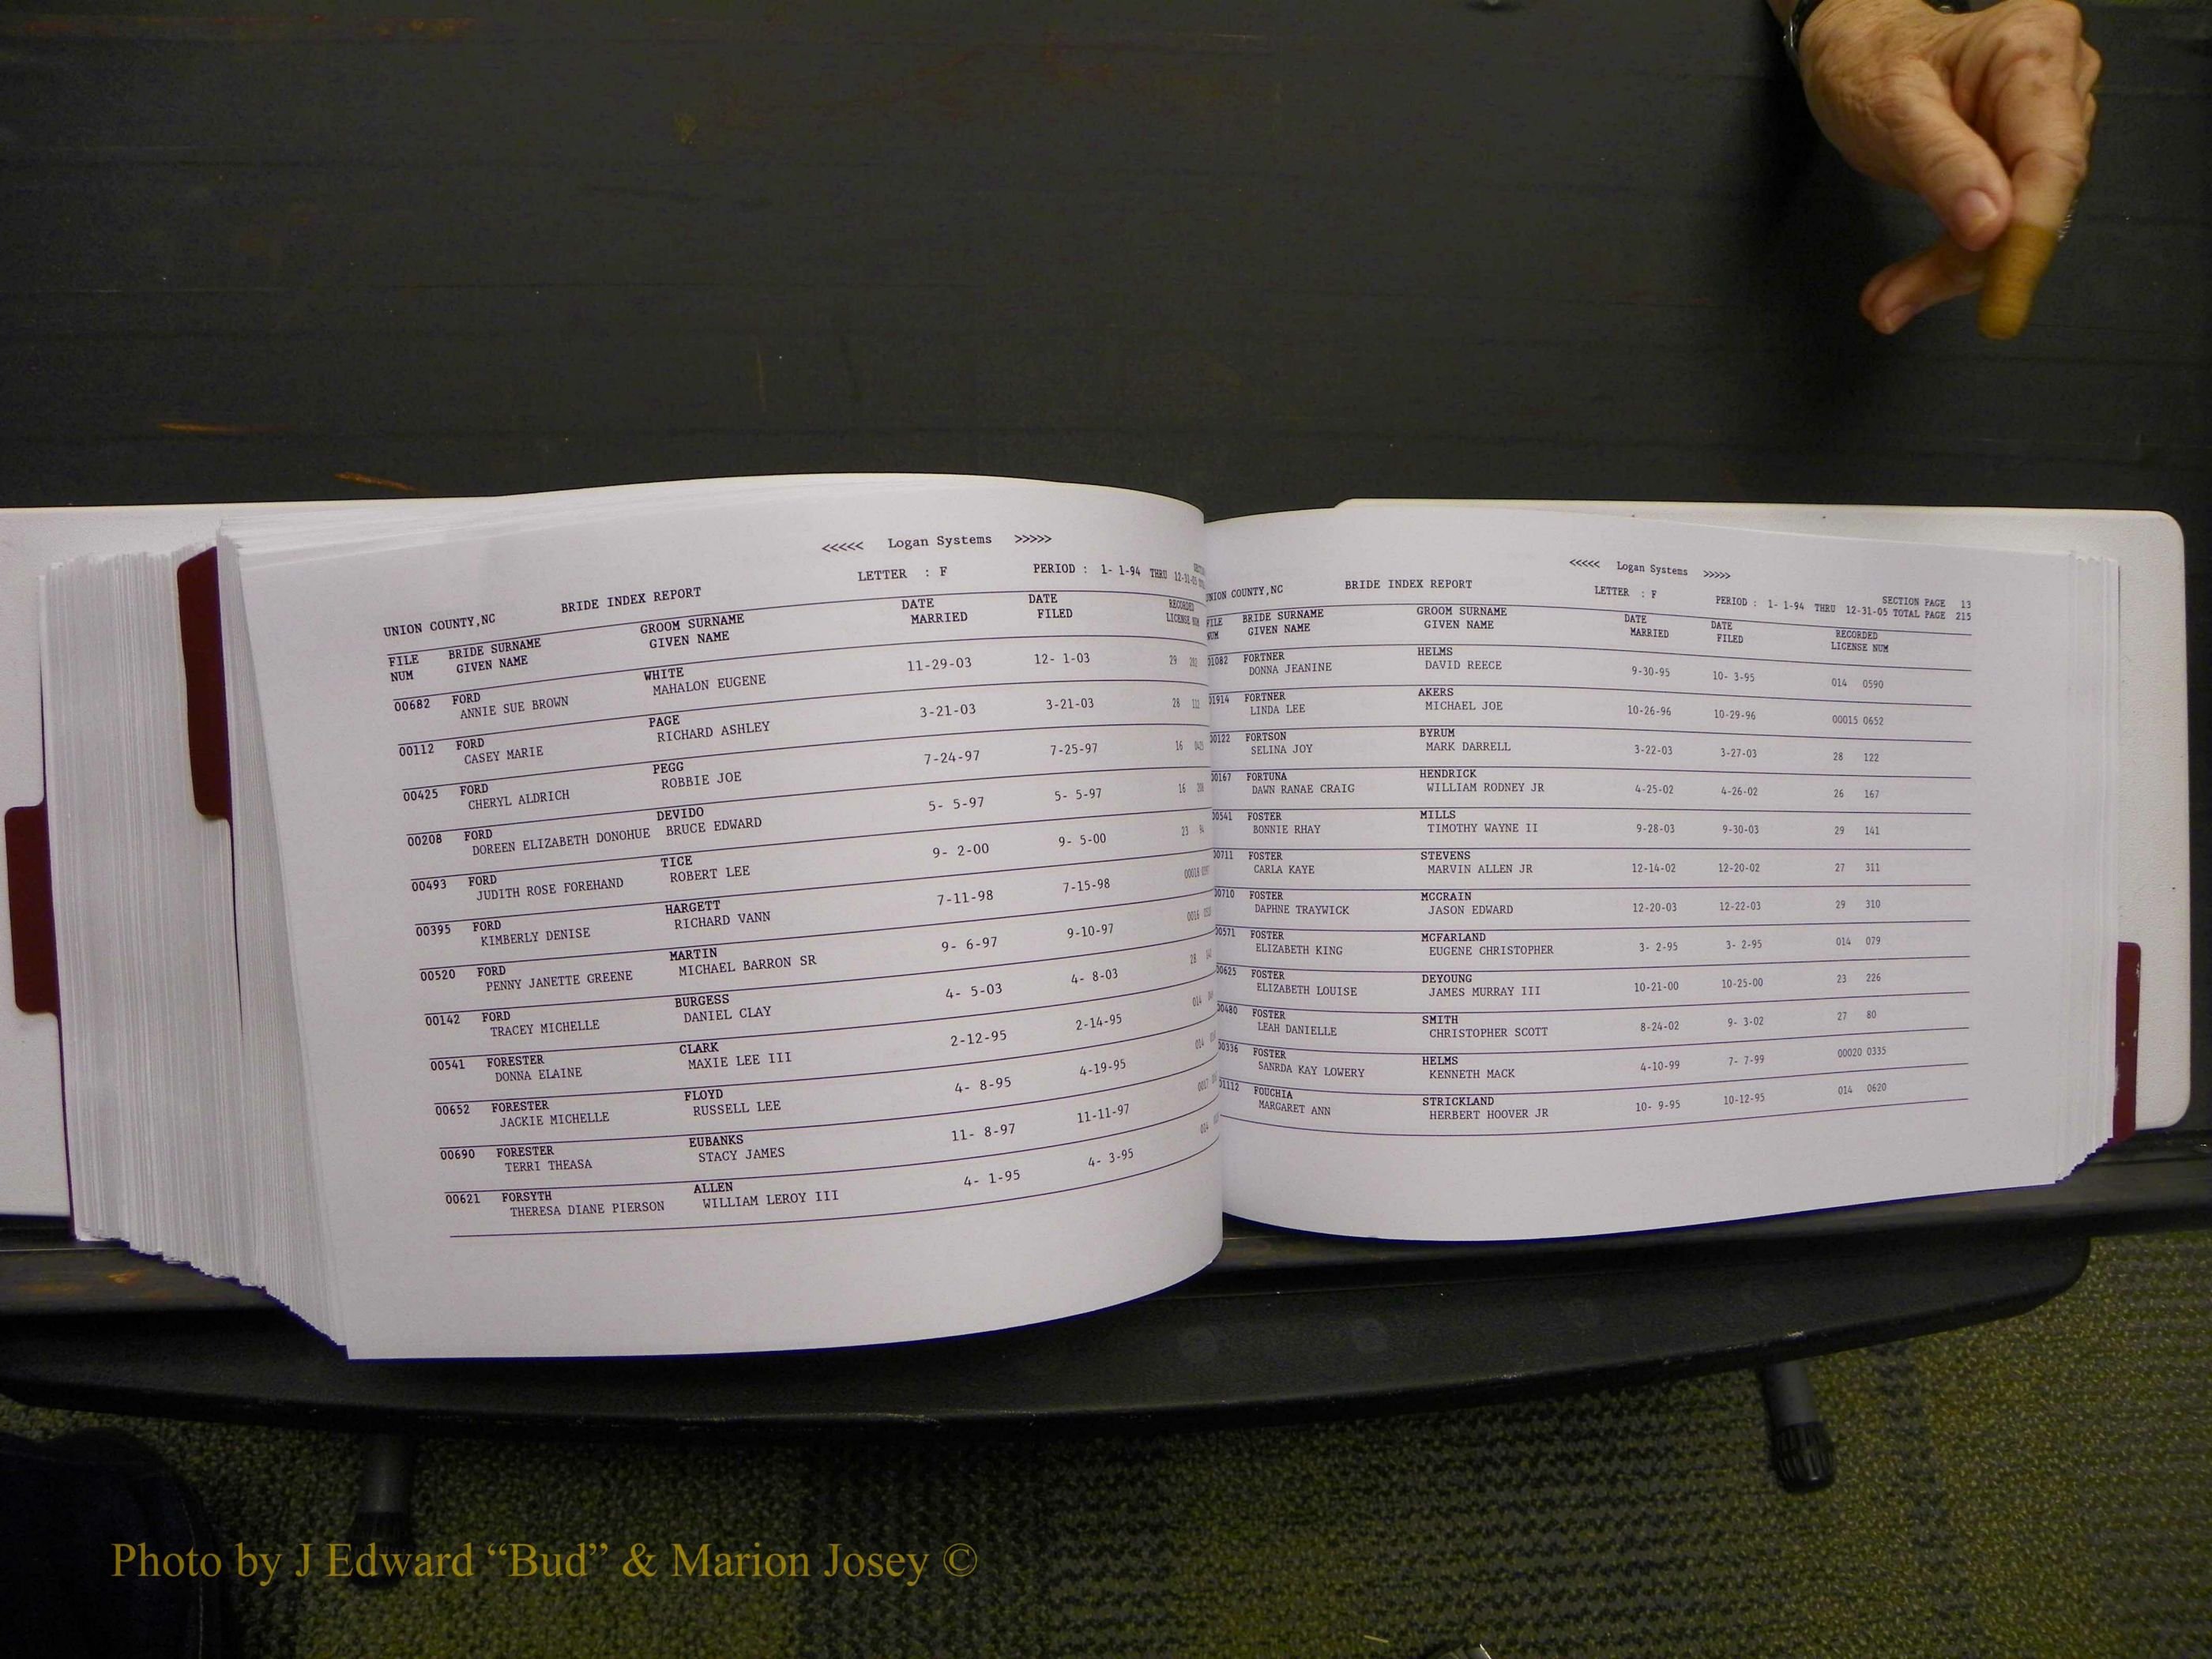 <<<<< Logan Systems >>>>>
UNION COUNTY,NC BRIDE INDEX REPORT LETTER : F PERIOD : 1- 1-94 THRU
FILE BRIDE SURNAME GROOM SURNAME DATE DATE RECORDED
NUM GIVEN NAME GIVEN NAME MARRIED FILED LICENSE NUM
00682 FORD WHITE 11-29-03 12- 1-03 29
ANNIE SUE BROWN MAHALON EUGENE
00112 FORD PAGE 3-21-03 3-21-03 28
CASEY MARIE RICHARD ASHLEY
00425 FORD PEGG 7-24-97 7-25-97 16
CHERYL ALDRICH ROBBIE JOE
00208 FORD DEVIDO 5- 5-97 5- 5-97 16
DOREEN ELIZABETH DONOHUE BRUCE EDWARD
00493 FORD TICE 9- 2-00 9- 5-00 23
JUDITH ROSE FOREHAND ROBERT LEE
00395 FORD HARGETT 7-11-98 7-15-98
KIMBERLY DENISE RICHARD VANN
00520 FORD MARTIN 9- 6-97 9-10-97 0016
PENNY JANETTE GREENE MICHAEL BARRON SR
00142 FORD BURGESS 4- 5-03 4- 8-03 28
TRACEY MICHELLE DANIEL CLAY
00541 FORESTER CLARK 2-12-95 2-14-95 014
DONNA ELAINE MAXIE LEE III
00652 FORESTER FLOYD 4- 8-95 4-19-95 014
JACKIE MICHELLE RUSSELL LEE
00690 FORESTER EUBANKS 11- 8-97 11-11-97 0017
TERRI THEASA STACY JAMES
00621 FORSYTH ALLEN 4- 1-95 4- 3-95 014
THERESA DIANE PIERSON WILLIAM LEROY III
<<<<< Logan Systems >>>>>
UNION COUNTY,NC BRIDE INDEX REPORT LETTER : F SECTION PAGE 13
PERIOD : 1- 1-94 THRU 12-31-05 TOTAL PAGE 215
FILE BRIDE SURNAME GROOM SURNAME DATE DATE RECORDED
NUM GIVEN NAME GIVEN NAME MARRIED FILED LICENSE NUM
01082 FORTNER HELMS 9-30-95 10- 3-95 014 0590
DONNA JEANINE DAVID REECE
01914 FORTNER AKERS 10-26-96 10-29-96 00015 0652
LINDA LEE MICHAEL JOE
00122 FORTSON BYRUM 3-22-03 3-27-03 28 122
SELINA JOY MARK DARRELL
00167 FORTUNA HENDRICK 4-25-02 4-26-02 26 167
DAWN RANAE CRAIG WILLIAM RODNEY JR
00541 FOSTER MILLS 9-28-03 9-30-03 29 141
BONNIE RHAY TIMOTHY WAYNE II
00711 FOSTER STEVENS 12-14-02 12-20-02 27 311
CARLA KAYE MARVIN ALLEN JR
00710 FOSTER MCCRAIN 12-20-03 12-22-03 29 310
DAPHNE TRAYWICK JASON EDWARD
00571 FOSTER MCFARLAND 3- 2-95 3- 2-95 014 079
ELIZABETH KING EUGENE CHRISTOPHER
00625 FOSTER DEYOUNG 10-21-00 10-25-00 23 226
ELIZABETH LOUISE JAMES MURRAY III
00480 FOSTER SMITH 8-24-02 9- 3-02 27 80
LEAH DANIELLE CHRISTOPHER SCOTT
00336 FOSTER HELMS 4-10-99 7- 7-99 00020 0335
SANRDA KAY LOWERY KENNETH MACK
01112 FOUCHIA STRICKLAND 10- 9-95 10-12-95 014 0620
MARGARET ANN HERBERT HOOVER JR
Photo by J Edward “Bud” & Marion Josey ©